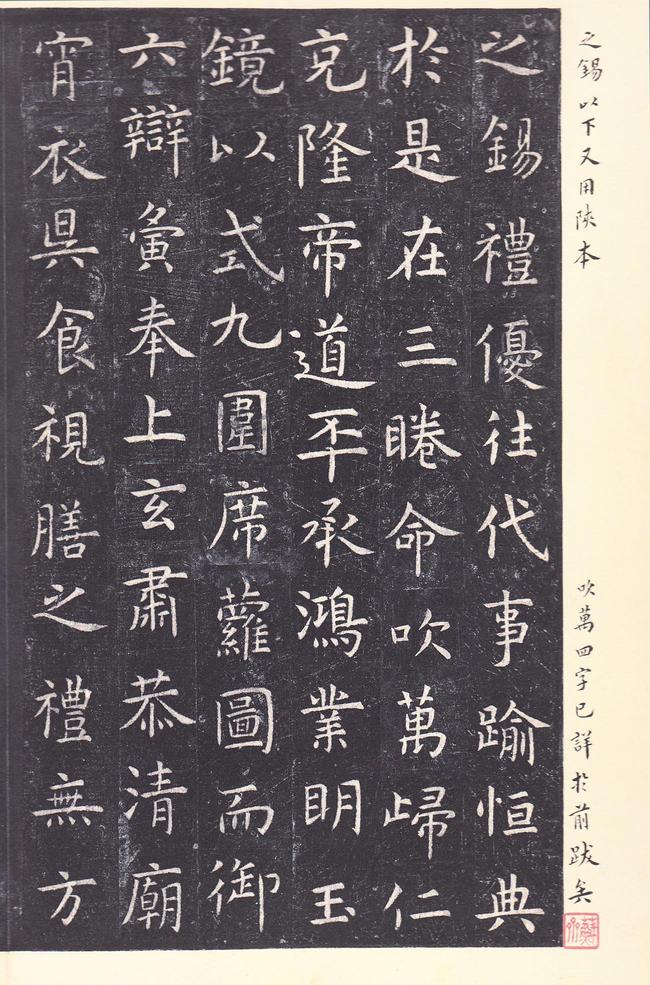 之錫以下又用陝本
吹萬四字已詳於前跋矣
之錫禮優往代事踰恒典
於是在三睠命吹萬歸仁
克隆帝道丕承鴻業明玉
鏡以式九圍席蘿圖而御
六辯寅奉上玄肅恭清廟
宵衣具食視膳之禮無方